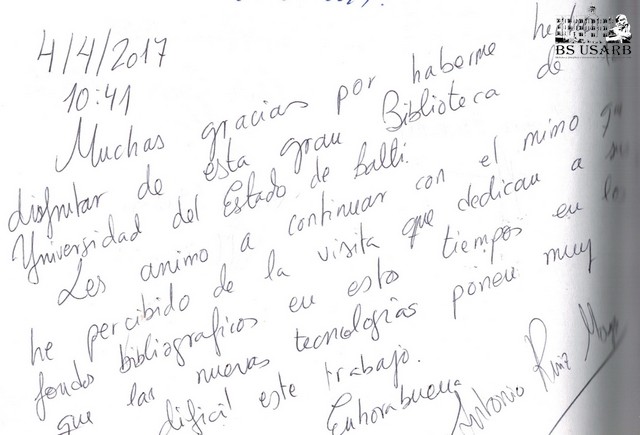 BS USARB
4/4/2017
10:41
Muchas gracias por haberme
disfrutar de esta gran Biblioteca de
Universidad del Estado de Balti.
Les animo a continuar con el mimo
he percibido de la visita que dedican a
fondos bibliograficos en estos tiempos en los
que las nuevas tecnologías ponen muy
dificil este trabajo.
Enhorabuena
Antonio Ruiz